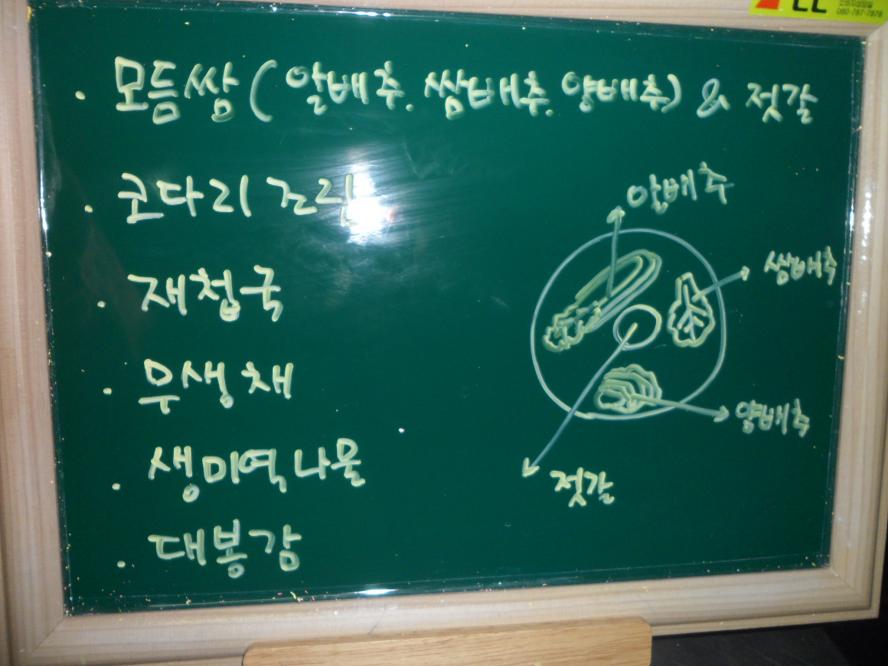 · 모듬쌈(알배추. 쌈배추. 양배추) & 젓갈
· 코다리 조림
· 재첩국
· 무생채
· 생미역나물
· 대봉감
알배추
쌈배추
양배추
젓갈